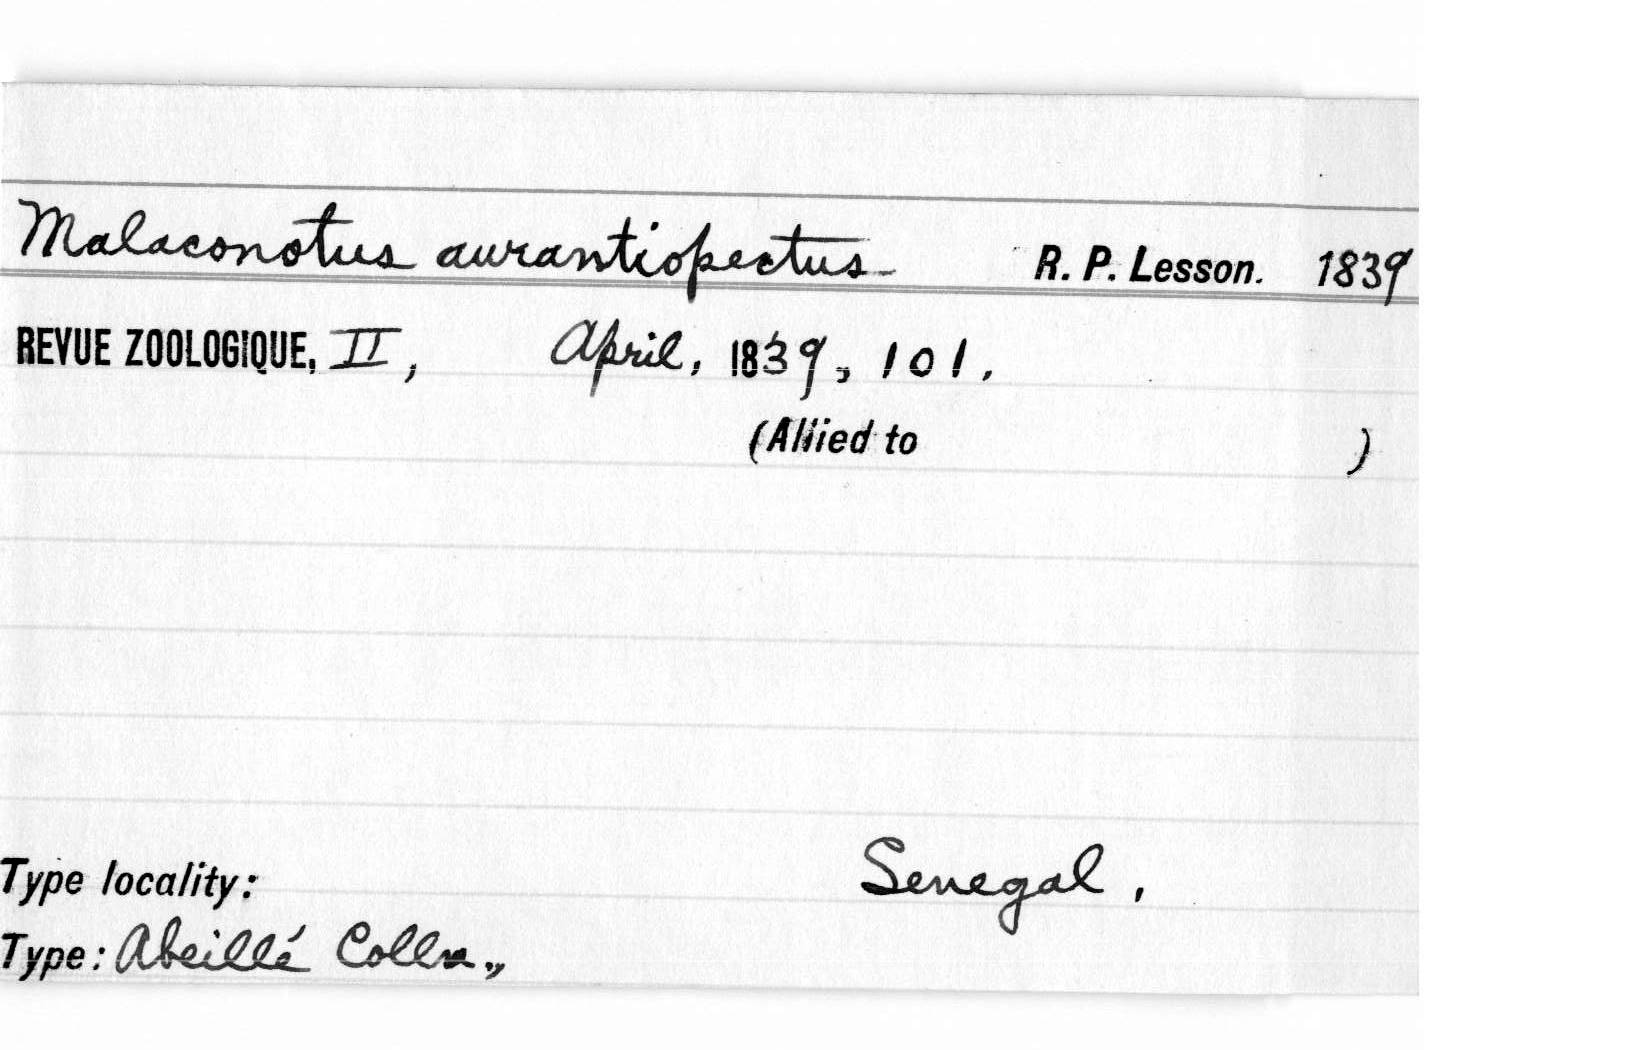 Malaconotus aurantiopectus R. P. Lesson. 1839
REVUE ZOOLOGIQUE, II, April, 1839, 101.
(Allied to )
Type locality: Senegal,
Type: Abeillé Colln.,